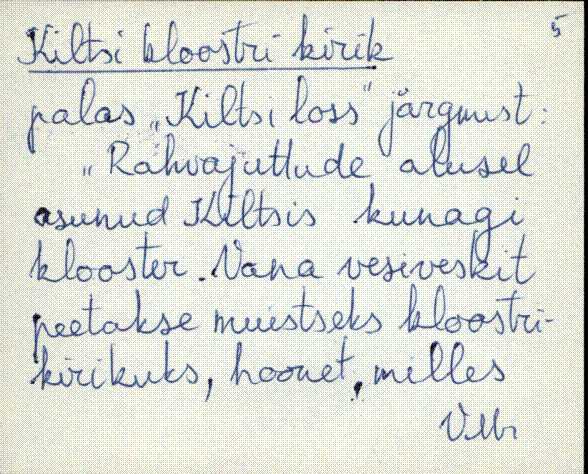 5
Kiltsi kloostri kirik
palas „Kiltsi loss" järgmist:
„Rahvajuttude alusel
asunud Kiltsis kunagi
klooster. Vana vesiveskit
peetakse muistseks kloostri-
kirikuks, hoonet, milles